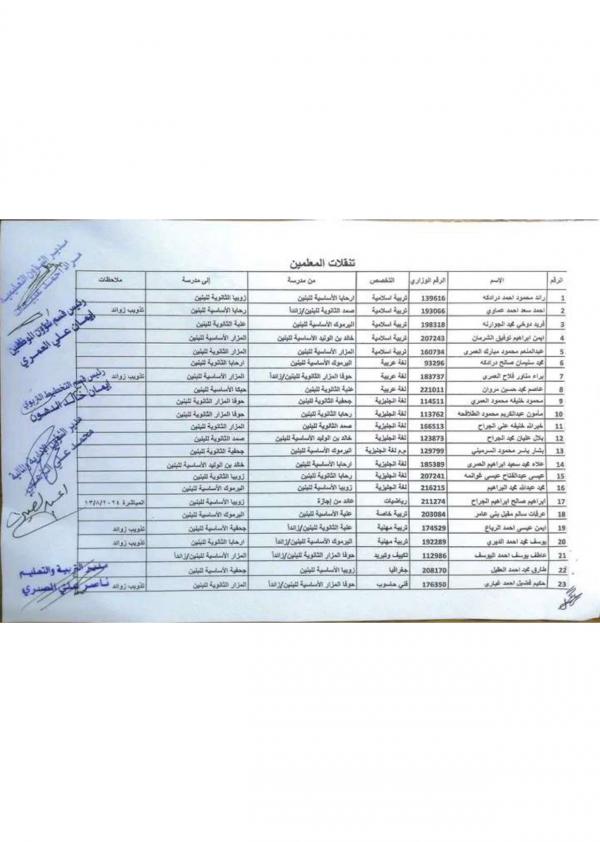 تنقلات المعلمين
الرقم الإسم الرقم الوزاري التخصص من مدرسة إلى مدرسة ملاحظات
1 رائد محمود احمد درادكه 139616 تربية اسلامية ارحابا الأساسية للبنين زوبيا الثانوية للبنين
2 احمد سعد احمد عضاوي 193066 تربية اسلامية صمد الثانوية للبنين/زائداً رحابا الأساسية للبنين تذويب زوائد
3 فريد دوخي محمد الجوارنه 198318 تربية اسلامية اليرموك الأساسية للبنين عنبة الثانوية للبنين
4 ايمن ابراهيم توفيق الشرمان 207243 تربية اسلامية خالد بن الوليد الأساسية للبنين المزار الأساسية للبنين
5 عبدالمنعم محمود مبارك العمري 160734 تربية اسلامية المزار الأساسية للبنين اليرموك الأساسية للبنين
6 محمد سليمان صالح درادكه 93296 لغة عربية زوبيا الثانوية للبنين رحابا الثانوية للبنين
7 براء مناور فلاح العمري 183737 لغة عربية حوفا المزار الثانوية للبنين/زائداً المزار الأساسية للبنين تذويب زوائد
8 عاصم محمد حسين مروان 221011 لغة عربية عنبة الثانوية للبنين حبكا الأساسية للبنين
9 محمود خليفه محمود العمري 114511 لغة انجليزية جحفية الثانوية للبنين حوفا المزار الثانوية للبنين
10 مأمون عبدالكريم محمود الطلافحه 113762 لغة انجليزية رحابا الثانوية للبنين المزار الثانوية للبنين
11 خيرالله خليفه علي الجراح 166513 لغة انجليزية صمد الثانوية للبنين المزار الأساسية للبنين
12 بلال عليان محمد الجراح 123873 لغة انجليزية خالد بن الوليد الأساسية للبنين صمد الثانوية للبنين
13 بشار ياسر محمود السرميني 129799 م.م لغة انجليزية اليرموك الأساسية للبنين جحفية الثانوية للبنين
14 علاء محمد سعيد ابراهيم العمري 185389 لغة انجليزية رحابا الأساسية للبنين خالد بن الوليد الأساسية للبنين
15 عيسى عبدالفتاح عيسى قوائمه 207241 لغة انجليزية المزار الأساسية للبنين رحابا الأساسية للبنين
16 محمد عبدالله محمد ابراهيم 216215 لغة انجليزية زوبيا الأساسية للبنين اليرموك الأساسية للبنين
17 ابراهيم صالح ابراهيم الجراح 211274 رياضيات عائد من إجازة زوبيا الأساسية للبنين المباشرة ١٣/٨/٢٠٢٤
18 عرفات سالم مقبل بني عامر 203084 تربية خاصة عنبة الأساسية للبنين اليرموك الأساسية للبنين
19 ايمن عيسى احمد الرباع 174529 تربية مهنية عنبة الثانوية للبنين/زائداً جحفية الأساسية للبنين تذويب زوائد
20 يوسف محمد احمد الديري 192289 تربية مهنية المزار الأساسية للبنين/زائداً ارحابا الثانوية للبنين تذويب زوائد
21 عاطف يوسف احمد اليوسف 112986 تكييف وتبريد حوفا المزار الثانوية للبنين/زائداً المزار الثانوية للبنين/زائداً
22 طارق محمد احمد العقيل 208170 جغرافيا زوبيا الأساسية للبنين جحفية الأساسية للبنين
23 حكيم فضيل احمد غباري 176350 فني حاسوب حوفا المزار الثانوية للبنين/زائداً المزار الثانوية للبنين تذويب زوائد
مدير الشؤون التعليمية
رئيس قسم شؤون الموظفين
إيمان علي العمري
رئيس قسم التخطيط التربوي
إيمان خالد الدهون
مدير الشؤون الإدارية والمالية
مدير التربية والتعليم
ناصر علي العمري